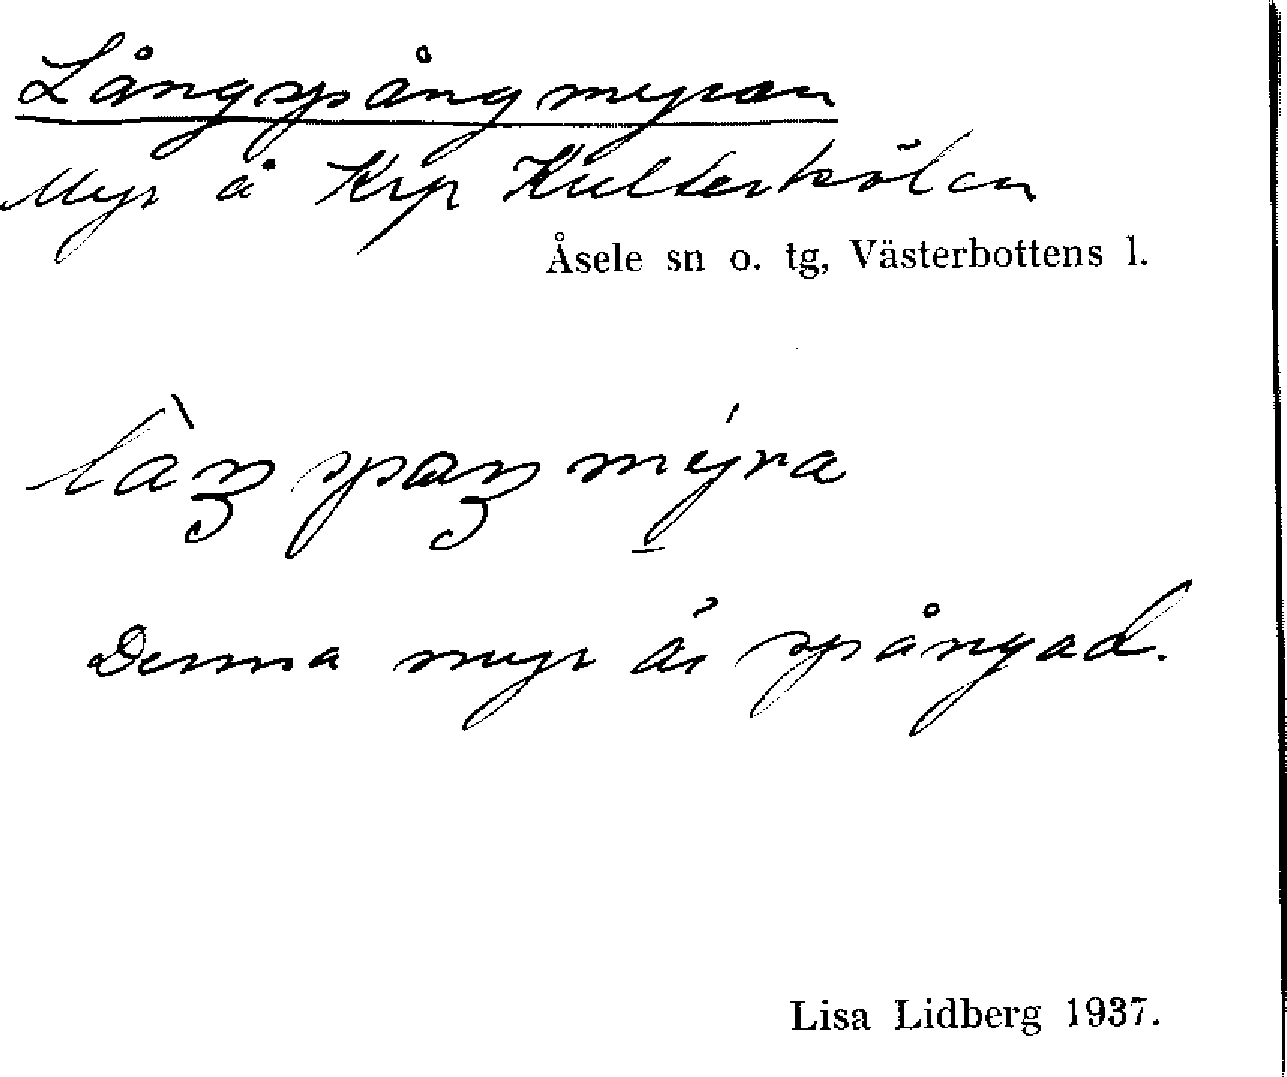 Långspångmyran
Myr å Krp Kulterkölen
Åsele sn o. tg, Västerbottens l.
Denna myr är spångad.
Lisa Lidberg 1937.